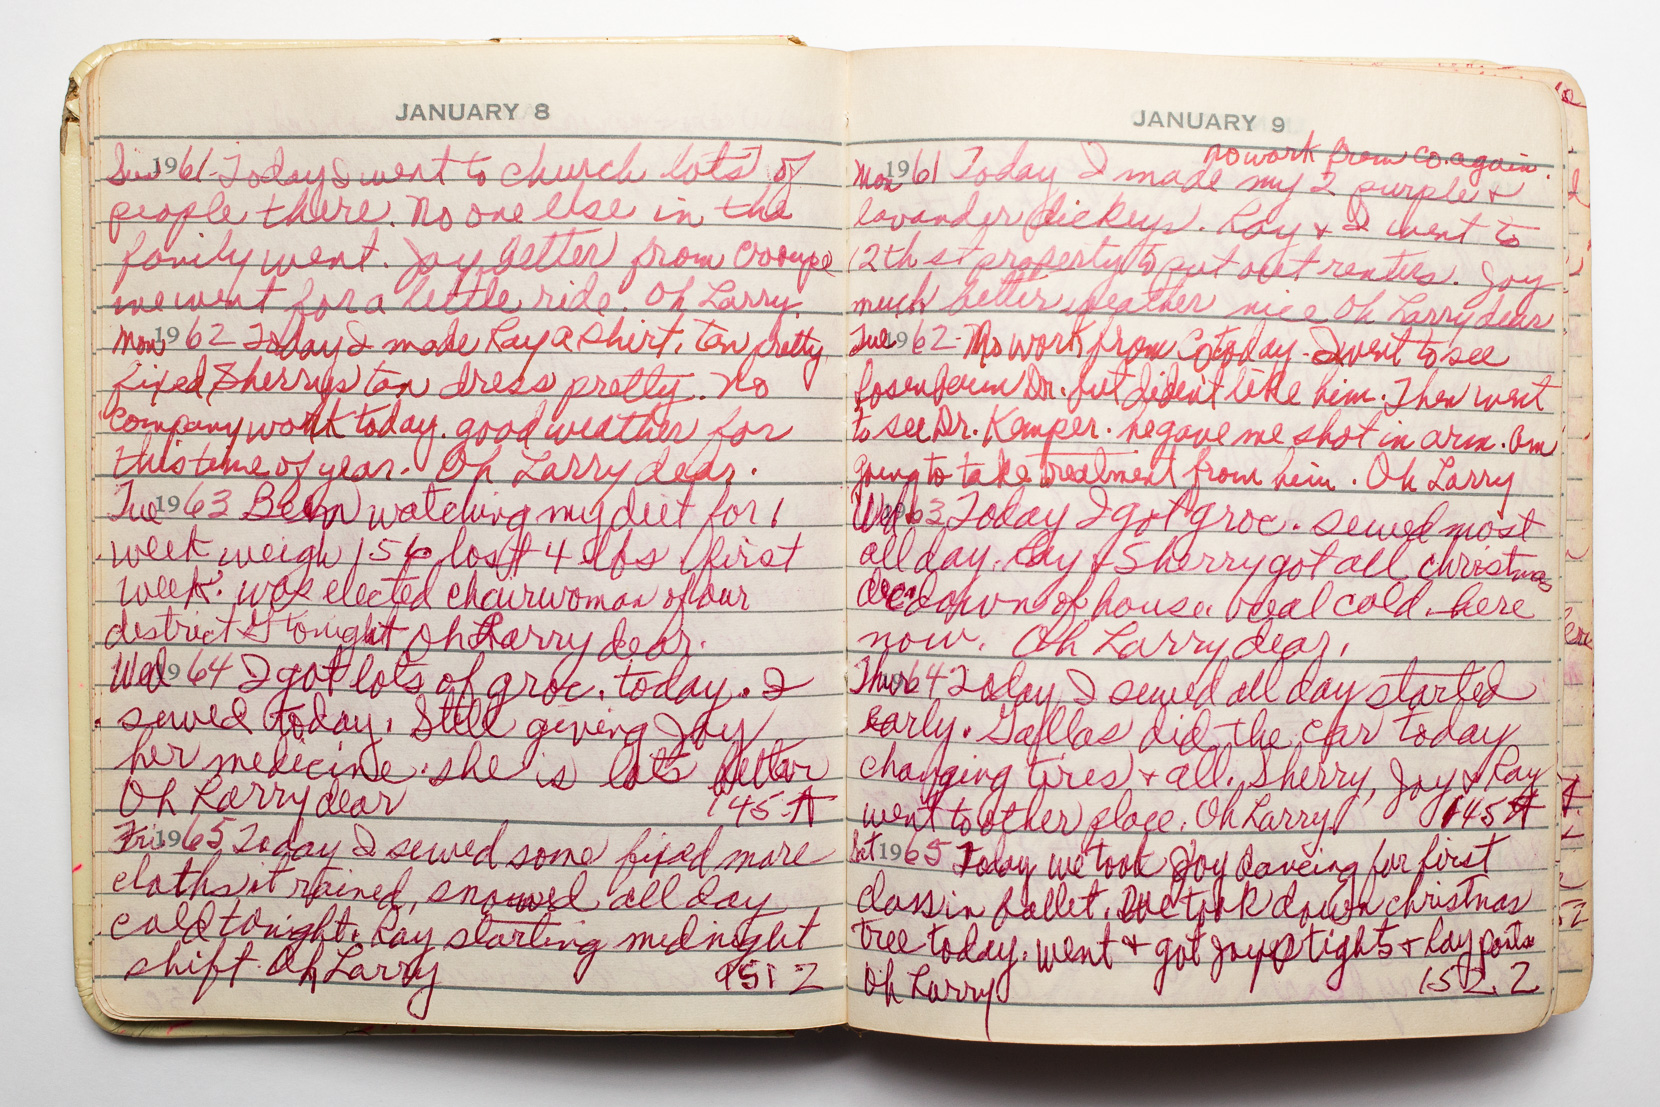 JANUARY 8
Sun 1961 Today I went to church lots of
people there. No one else in the
family went. Joy better from croupe
we went for a little ride. Oh Larry.
Mon 1962 Today I made Ray a shirt, tan pretty
fixed Sherrys tan dress pretty. No
company work today. good weather for
this time of year. Oh Larry dear.
Tue 1963 Been watching my diet for 1
week weigh 154 lost 4 lbs first
week. was elected chairwoman of our
district tonight Oh Larry dear.
Wed 1964 I got lots of groc. today. I
sewed today. Still giving Joy
her medicine. she is lots better
Oh Larry dear 145
Fri 1965 Today I sewed some fixed more
cloths, it rained, snowed all day
cold tonight. Ray starting midnight
shift. Oh Larry 151 2
JANUARY 9
no work from co. again.
Mon 1961 Today I made my 2 purple +
lavander dickeys. Ray + I went to
12th st property to put out rentees. Joy
much better weather nice Oh Larry dear
Tue 1962 - No work from Co today - I went to see
Rosenbaum Dr. but dident like him. Then went
to see Dr. Kemper. he gave me shot in arm. am
going to take treatment from him. Oh Larry
Wed 1963 Today I got groc. sewed most
all day. Ray + Sherry got all christmas
dec down of house. real cold here
now. Oh Larry dear.
Thur 1964 Today I sewed all day started
early. Dallas did the car today
changing tires + all. Sherry, Joy + Ray
went to other place. Oh Larry 145
Sat 1965 Today we took Joy danceing for first
class in ballet. We took down christmas
tree today. went + got Joy tights + Ray pants
Oh Larry 152 2